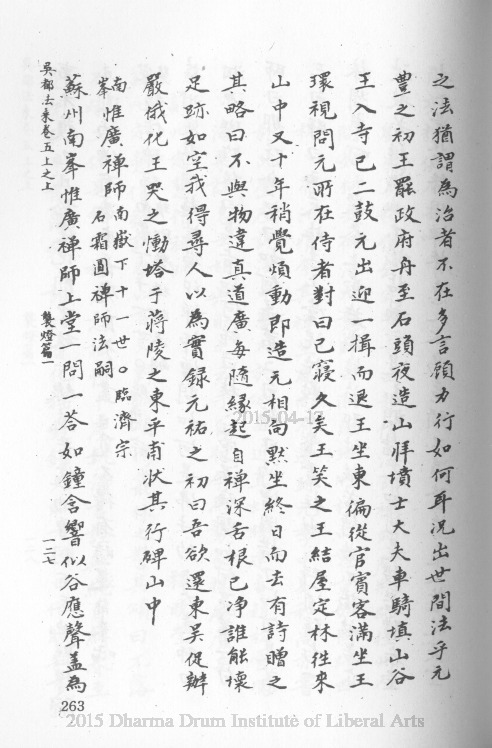 之法猶謂為治者不在多言顧力行如何耳況出世間法乎元
豐之初王罷政府舟至石頭夜造山拜墳士大夫車騎填山谷
王入寺已二鼓元出迎一揖而退王坐東偏從官賓客滿坐王
環視問元所在侍者對曰已寢久矣王笑之王結屋定林往來
山中又十年稍覺煩動即造元相向默坐終日而去有詩贈之
其略曰不與物違真道廣每隨緣起自禪深舌根已净誰能壞
足跡如空我得尋人以為實錄元祐之初曰吾欲還東吳促辦
嚴俄化王哭之慟塔于蔣陵之東平甫狀其行碑山中
南峯惟廣禪師南嶽下十一世。臨濟宗
石霜圓禪師法嗣
蘇州南峯惟廣禪師上堂一問一答如鐘含響似谷應聲蓋為
吳都法乘卷五上之上
製燈篇一
一二七
263
2015-04-17
2015 Dharma Drum Institute of Liberal Arts